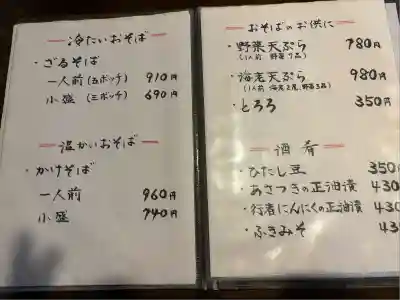 冷たいおそば
・ざるそば
一人前(五ボッチ) 910円
小盛(三ボッチ) 690円
温かいおそば
・かけそば
一人前 960円
小盛 740円
おそばのお供に
・野菜天ぷら 780円
(1人前 野菜7品)
・海老天ぷら 980円
(1人前 海老2尾、野菜3品)
・とろろ 350円
酒肴
・ひたし豆 350
・あさつきの正油漬 430
・行者にんにくの正油漬 430
・ふきみそ 43